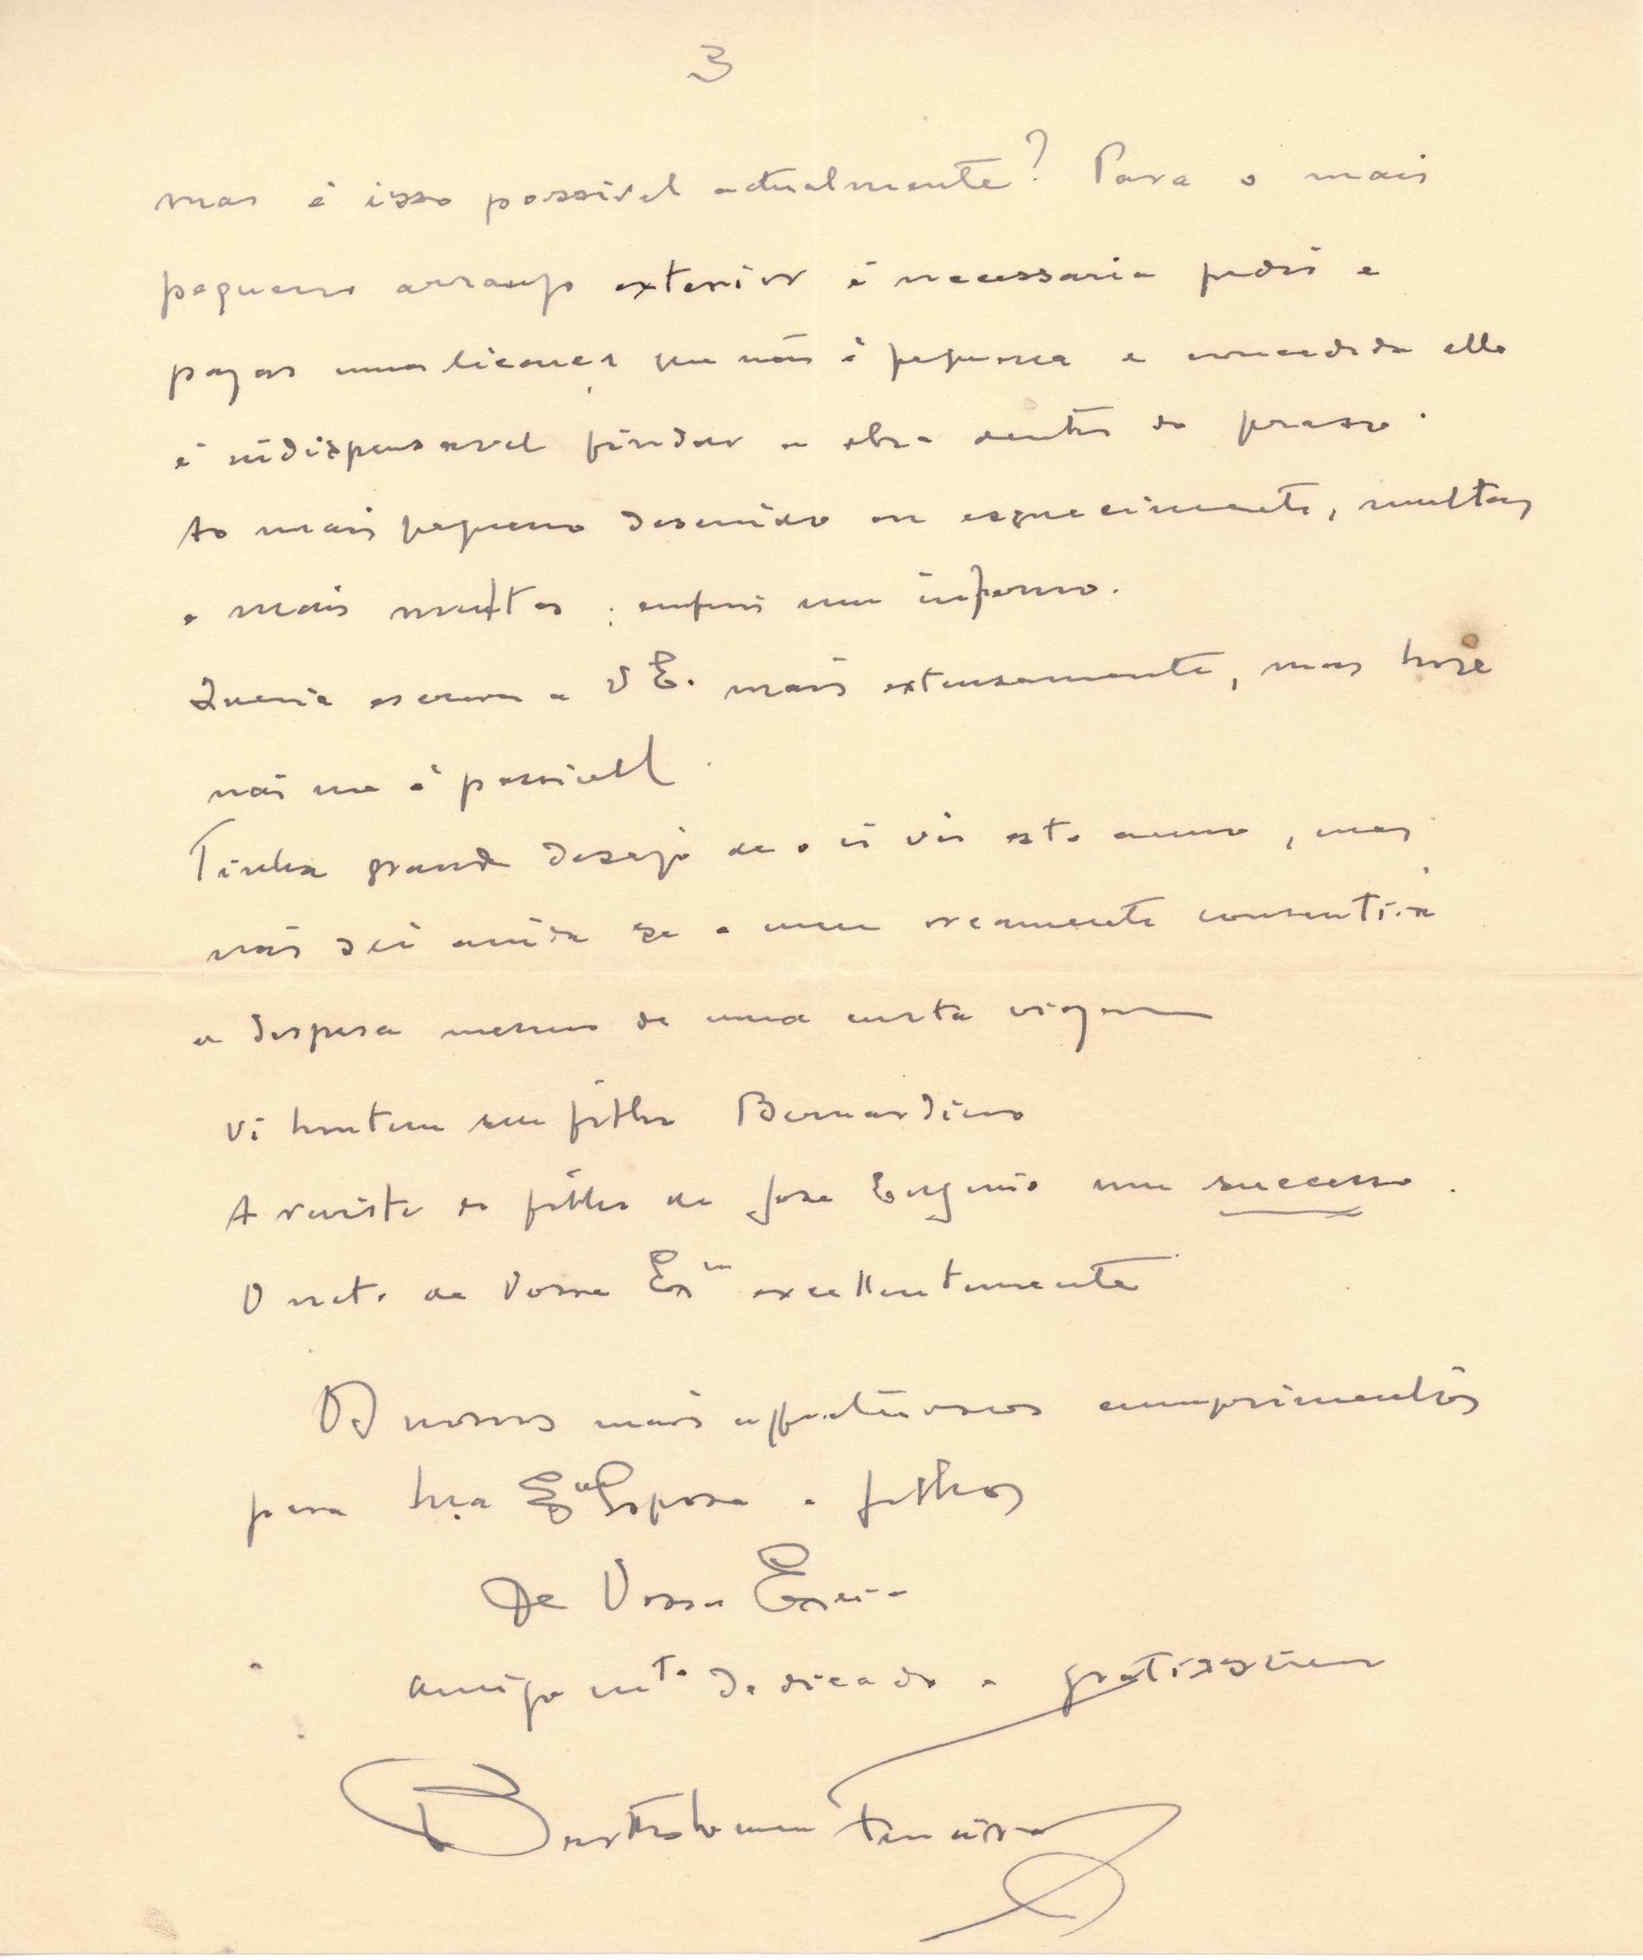 3
mas é isso possivel actualmente? Para o mais
pequeno arranjo exterior é necessario pedir e
pagar uma licença que não é pequena e concedida ella
é indispensavel findar a obra dentro do praso.
Ao mais pequeno descuido ou esquecimento, multas
e mais multas; enfim um inferno.
Queria escrever a V E. mais extensamente, mas hoje
não me é possivel.
Tinha grande desejo de o ir ver este anno, mas
não sei ainda se o meu orcamento consentirá
a despesa mesmo de uma curta viagem
Vi hontem seu filho Bernardino
A revista do filho de José Eugenio um successo.
O neto de Vossa Exª excellentemente
Os nossos mais affectuosos cumprimentos
para sua Exma Esposa e filhos
De Vossa Excia
amigo mto dedicado e gratissimo
Bartholomeu Ferreira